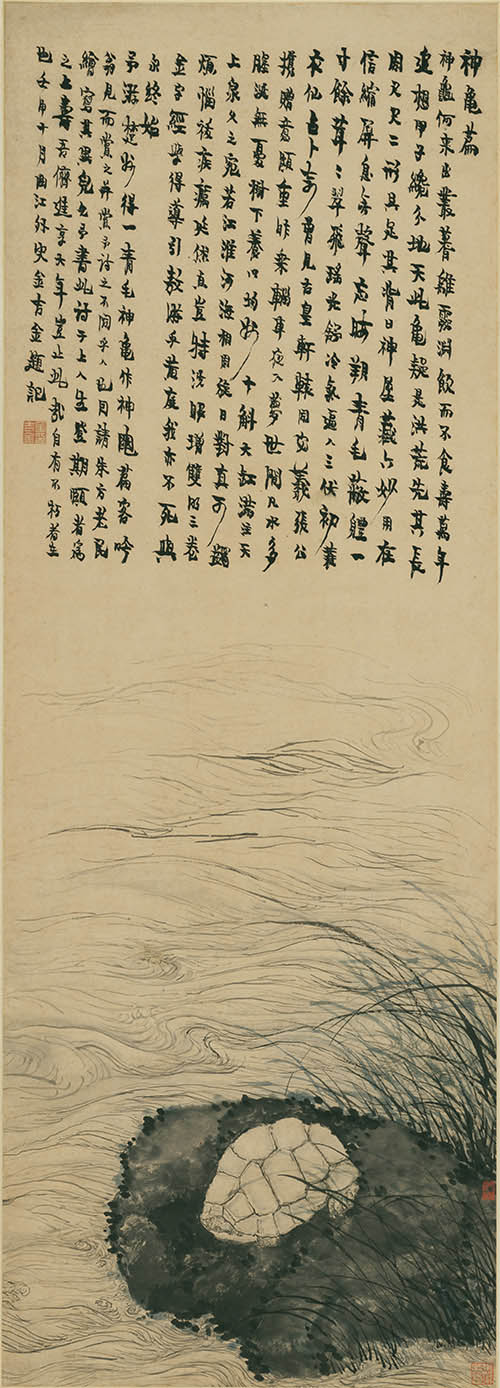 神龜篇
神龜何來出叢蓍離露淵飲而不食壽萬年
想甲子纔介地天此龜疑是洪荒先其長
用尺尺二形具足其背曰神屋藏六妙用在
信縮屏息無聲忘晦朔青毛蔽體一
寸餘茸〻翠飛瑤光餘冷氣逼人三伏初蓑
衣仙占卜曾見古皇軒轅同宓羲張公
攜贈意頗重昨乘輜車夜入夢世間凡水多
腥涎無憂樹下養以十斛大缸滿注天
上泉久之宛若江淮河海相周旋日對真可蠲
煩惱祛疾癘延豈特洗眼增雙明三卷
金字經學得導引教游乎黃庭我亦不死與
永終始
予游楚州得一青毛神龜作神龜篇客吟
翁見而賞之并賞予詩之不同乎人也因請朱方老民
繪寫其異皃乞予書此詩于上人生登期頤者為
之上壽吾儕逢享大年豈止此哉自有不朽者在
也壬申十月曲江外史金吉金題記